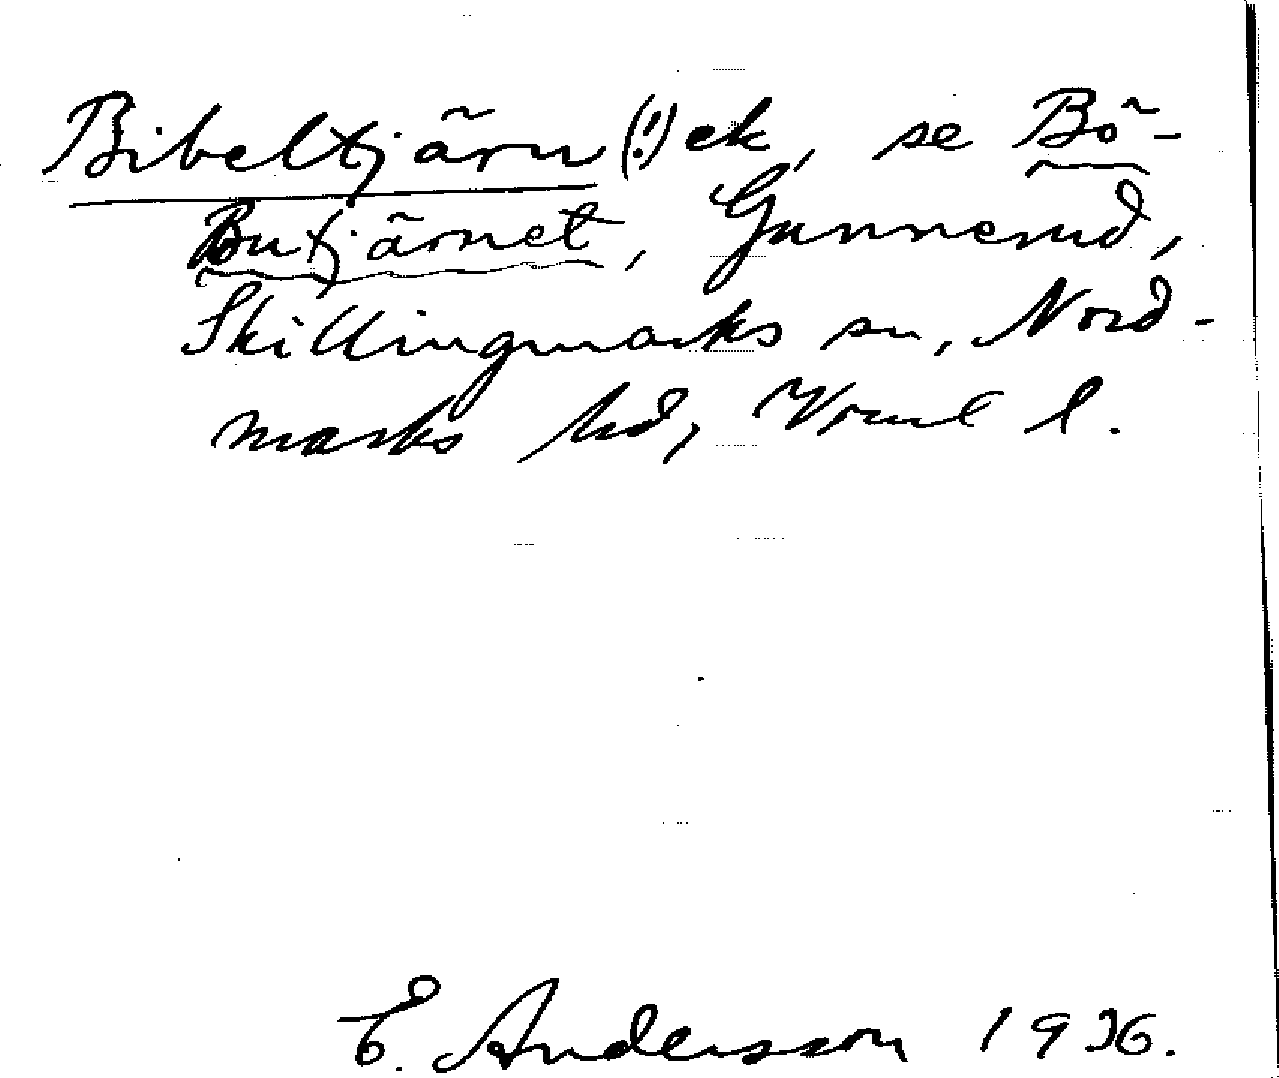 Bibeltjärn (!) ek, se Bö-
Butjärnet, Gunnerud,
Skillingmarks sn, Nord-
marks hd, Vrml l.
E. Andersson 1936.